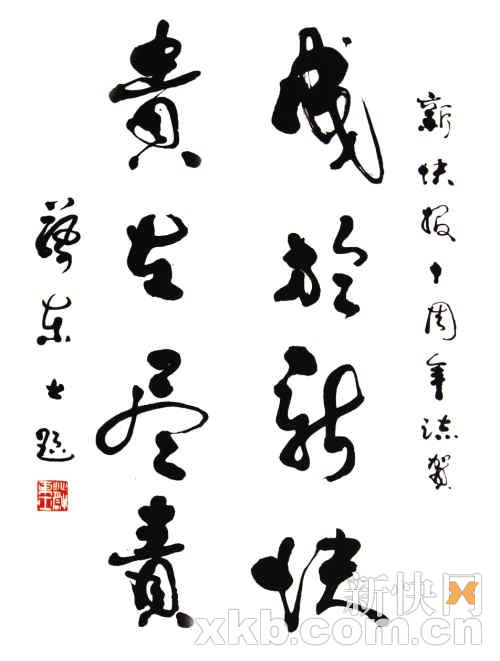 新快报十周年誌贺
成於新快
贵在尽责
蔡东士题
新快网
xkb.com.cn